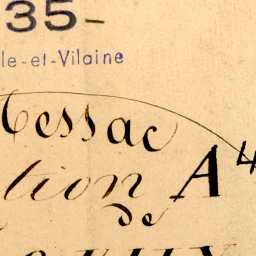 35-
le-et-Vilaine
Messac
tion A4
de